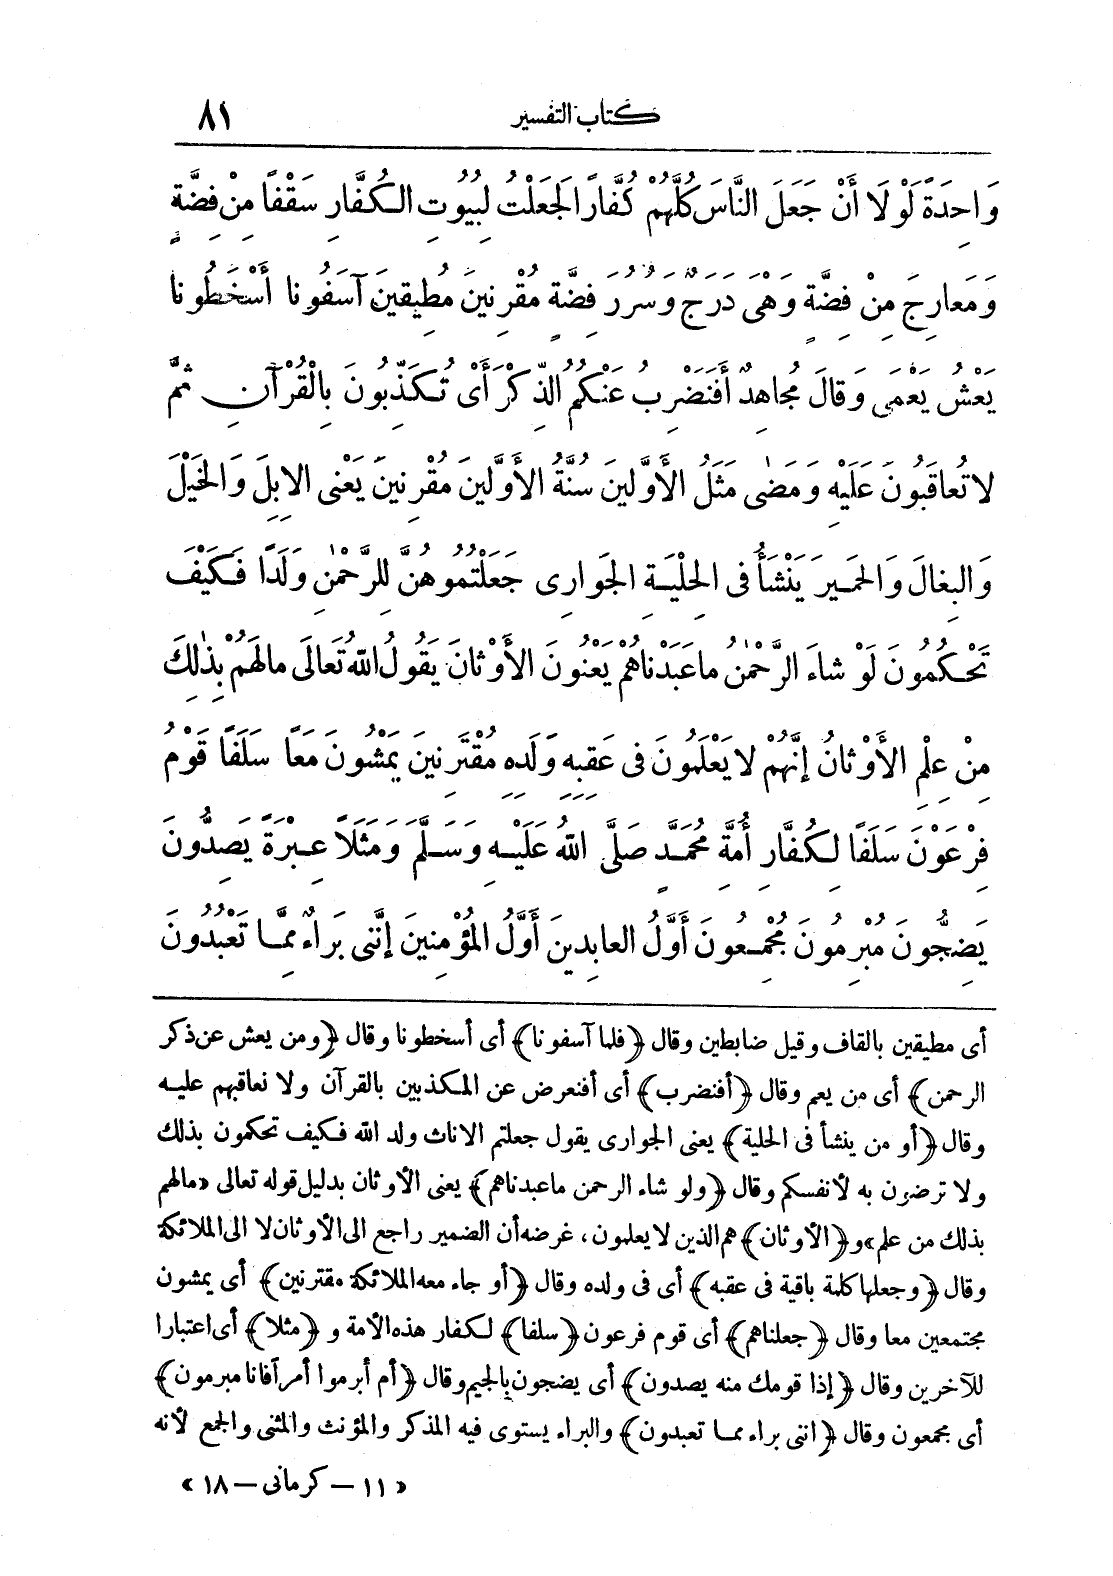 كتاب التفسير ٨١
وَاحِدَةً لَوْلَا أَنْ جَعَلَ النَّاسَ كُلَّهُمْ كُفَّارًا لَجَعَلْتُ لِبُيُوتِ الكُفَّارِ سَقْفًا مِنْ فِضَّةٍ
وَمَعَارِجَ مِنْ فِضَّةٍ وَهْىَ دَرَجٌ وَسُرُرَ فِضَّةٍ مُقْرِنِينَ مُطِيقِينَ آسَفُونا أَسْخَطُونا
يَعْشُ يَعْمَى وَقالَ مُجاهِدٌ أَفَنَضْرِبُ عَنْكُمُ الذِّكْرَ أَىْ تُكَذِّبُونَ بِالْقُرْآنِ ثُمَّ
لا تُعاقَبُونَ عَلَيْهِ وَمَضَى مَثَلُ الأَوَّلِينَ سُنَّةُ الأَوَّلِينَ مُقْرِنِينَ يَعْنى الإِبِلَ وَالخَيْلَ
وَالبِغالَ وَالحَمِيرَ يَنْشَأُ فى الحِلْيَةِ الجَوَارِى جَعَلْتُمُوهُنَّ لِلرَّحْمٰنِ وَلَدًا فَكَيْفَ
تَحْكُمُونَ لَوْ شاءَ الرَّحْمٰنُ ما عَبَدْناهُمْ يَعْنُونَ الأَوْثانَ يَقُولُ اللهُ تَعَالَى مالَهُمْ بِذٰلِكَ
مِنْ عِلْمٍ الأَوْثانُ إِنَّهُمْ لا يَعْلَمُونَ فى عَقِبِهِ وَلَدِهِ مُقْتَرِنِينَ يَمْشُونَ مَعًا سَلَفًا قَوْمُ
فِرْعَوْنَ سَلَفًا لِكُفَّارِ أُمَّةِ مُحَمَّدٍ صَلَّى اللهُ عَلَيْهِ وَسَلَّمَ وَمَثَلاً عِبْرَةً يَصِدُّونَ
يَضِجُّونَ مُبْرِمُونَ مُجْمِعُونَ أَوَّلُ العابِدِينَ أَوَّلُ المُؤْمِنِينَ إِنَّنِى بَرَاءٌ مِمَّا تَعْبُدُونَ
أى مطيقين بالقاف وقيل ضابطين وقال ﴿فلما آسفونا﴾ أى أسخطونا وقال ﴿ومن يعش عن ذكر
الرحمن﴾ أى من يعم وقال ﴿أفنضرب﴾ أى أفنعرض عن المكذبين بالقرآن ولا نعاقبهم عليه
وقال ﴿أو من ينشأ فى الحلية﴾ يعنى الجوارى يقول جعلتم الاناث ولد الله فكيف تحكمون بذلك
ولا ترضون به لأنفسكم وقال ﴿ولو شاء الرحمن ماعبدناهم﴾ يعنى الأوثان بدليل قوله تعالى «مالهم
بذلك من علم» و﴿الأوثان﴾ هم الذين لا يعلمون، غرضه أن الضمير راجع الى الأوثان لا الى الملائكة
وقال ﴿وجعلها كلمة باقية فى عقبه﴾ أى فى ولده وقال ﴿أو جاء معه الملائكة مقترنين﴾ أى يمشون
مجتمعين معا وقال ﴿جعلناهم﴾ أى قوم فرعون ﴿سلفا﴾ لكفار هذه الأمة و ﴿مثلا﴾ أى اعتبارا
للآخرين وقال ﴿إذا قومك منه يصدون﴾ أى يضجون بالجيم وقال ﴿أم أبرموا أمرا فانا مبرمون﴾
أى مجمعون وقال ﴿اننى براء مما تعبدون﴾ والبراء يستوى فيه المذكر والمؤنث والمثنى والجمع لأنه
« ١١ – كرمانى – ١٨ »